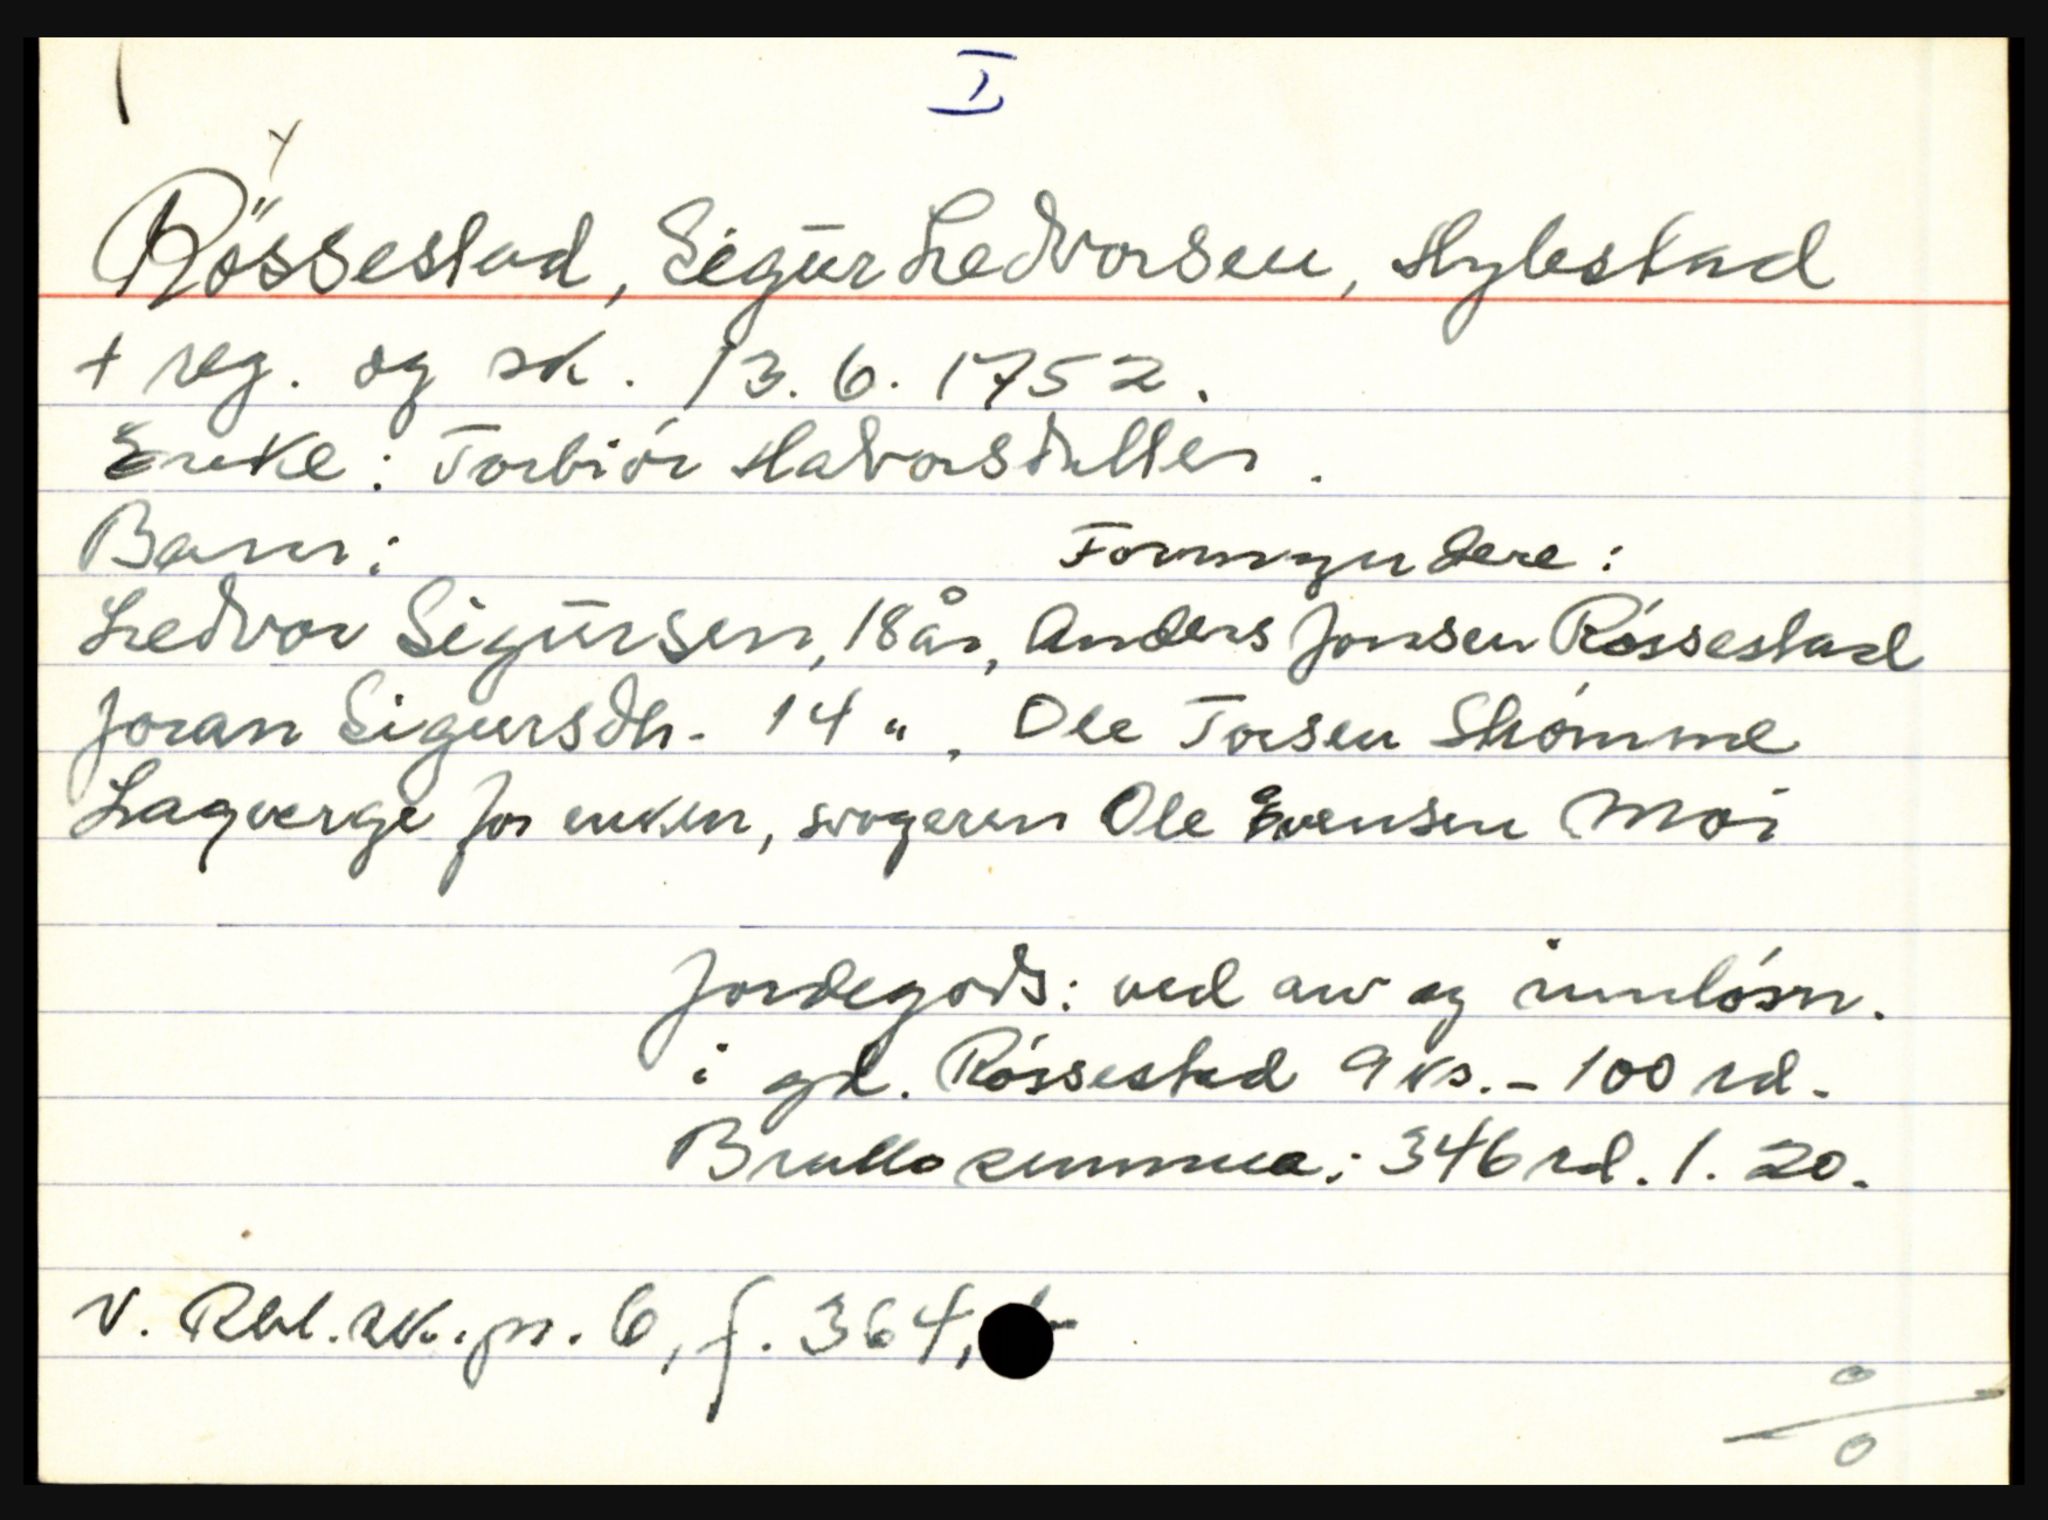 I
Røssestad, Sigūr Ledvorsen, Hylestad
+ reg. og sk. 13.6.1752.
Enke: Torbiór Halvorsdatter.
Barn: Formyndere:
Ledvor Sigūrsen, 18 år, Anders Jonsen Róssestad
Joran Sigursdtr. 14 ", Ole Torsen Strómme
Lagverge for enken, svogeren Ole Evensen Moi
Jordegods: ved arv og innlósn.
i gd. Róssestad 9 ks. - 100 rd.
Brutto summa: 346 rd. 1. 20.
V. Rbl. sk. pr. 6, f. 364,